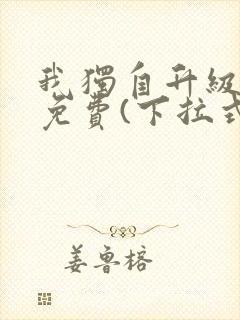 我獨自升級
免費(下拉式
姜魯榕